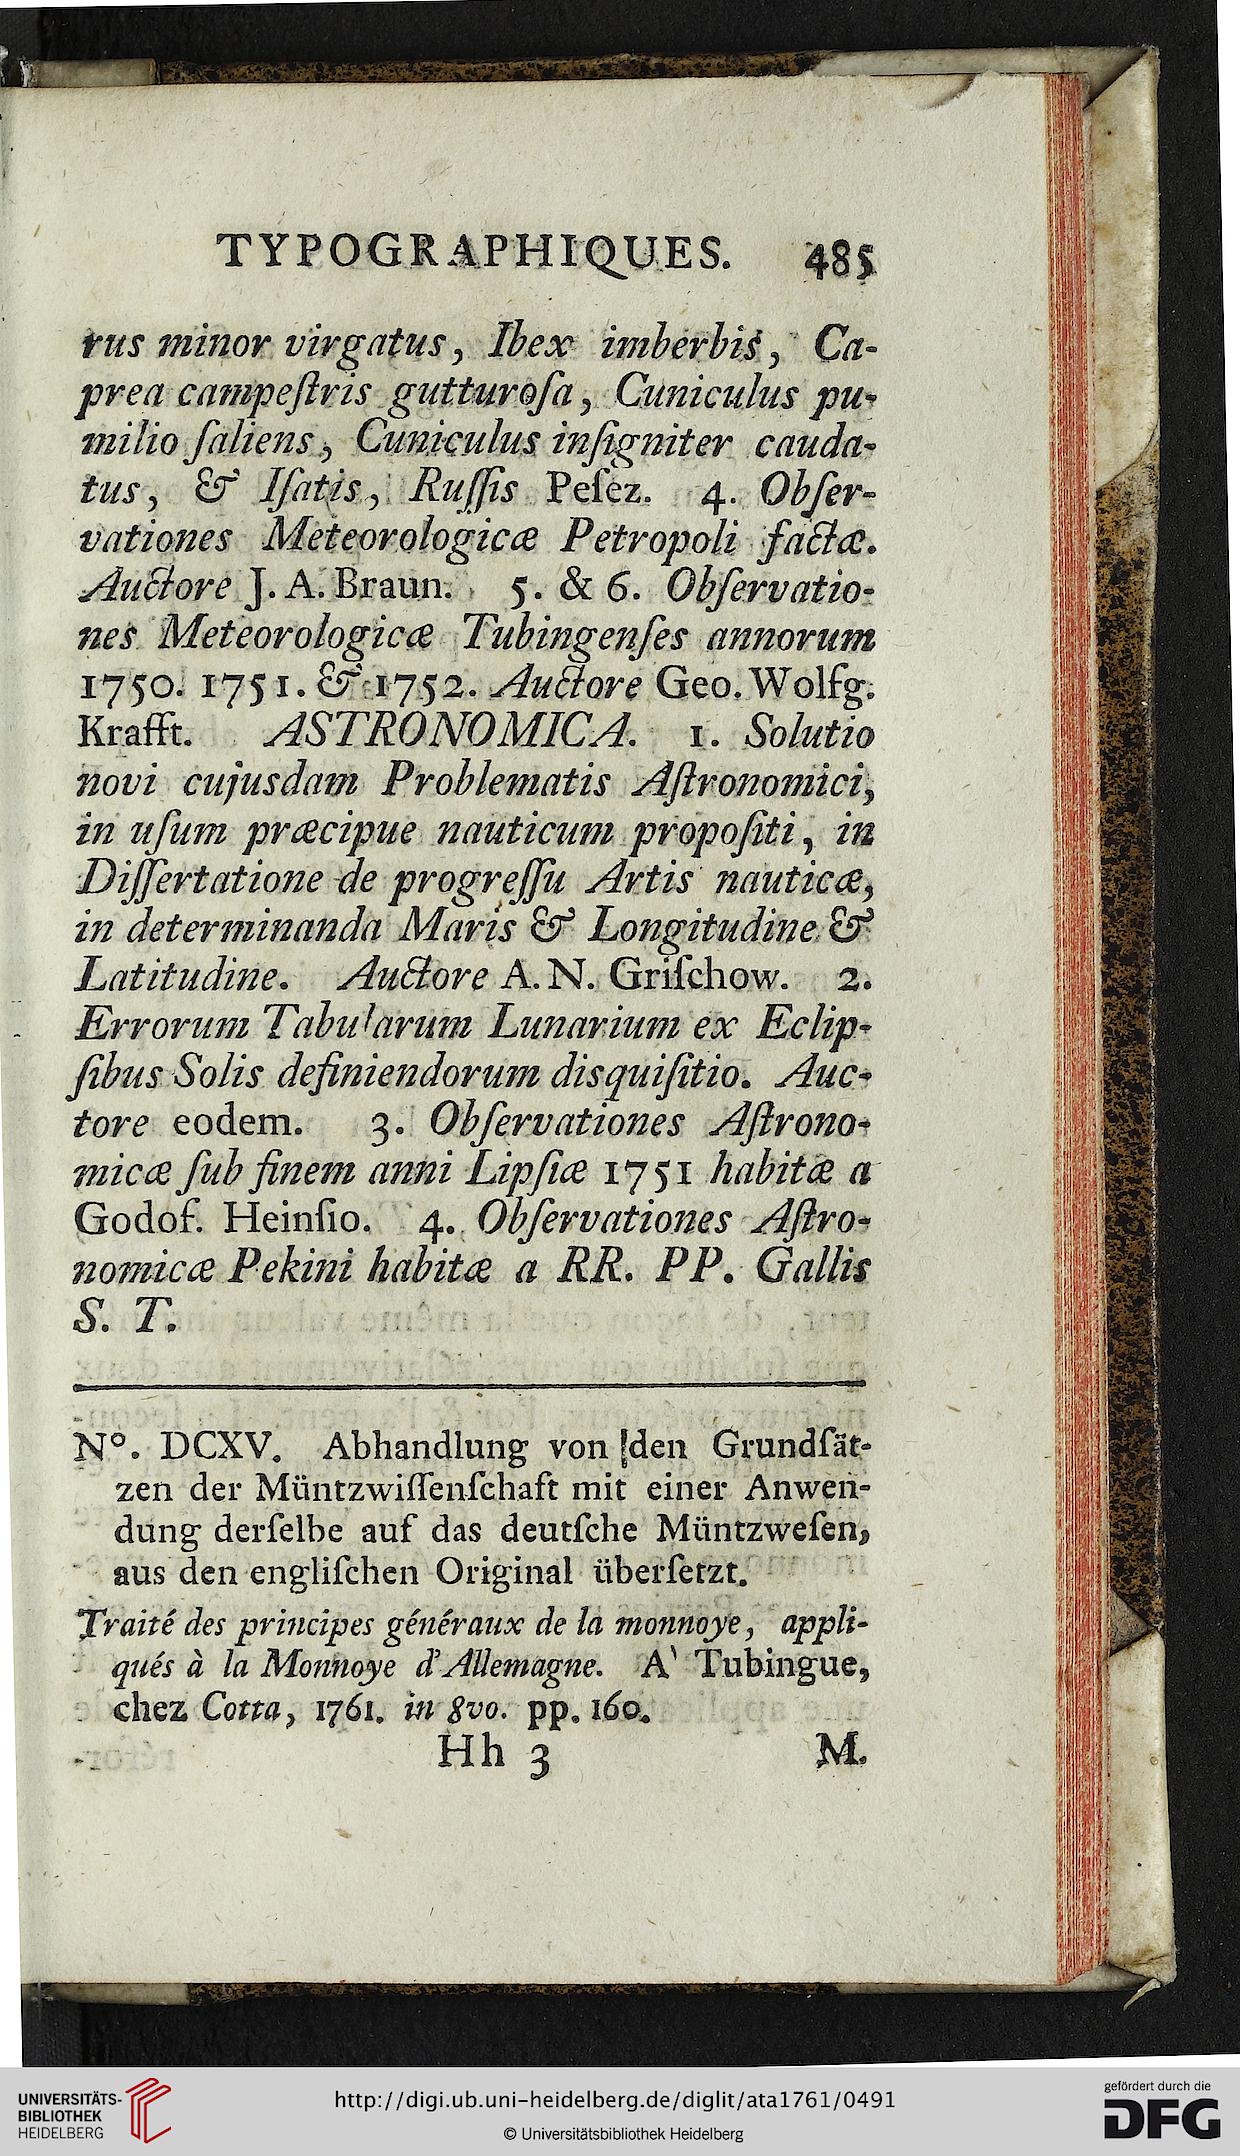 TYPOGRAPHIQUES. 485
rus minor virgatus, Ibex imberbis, Ca-
prea campeſtris gutturoſa, Cuniculus pu-
milio ſaliens, Cuniculus inſigniter cauda-
tus, & Iſatis, Ruſſis Peſez. 4. Obſer-
vationes Meteorologicæ Petropoli factæ.
Auctore J. A. Braun. 5. & 6. Obſervatio-
nes Meteorologicæ Tubingenſes annorum
1750. 1751. & 1752. Auctore Geo. Wolfg.
Krafft. ASTRONOMICA. 1. Solutio
novi cujusdam Problematis Aſtronomici,
in uſum præcipue nauticum propoſiti, in
Diſſertatione de progreſſu Artis nauticæ,
in determinanda Maris & Longitudine &
Latitudine. Auctore A. N. Griſchow. 2.
Errorum Tabularum Lunarium ex Eclip-
ſibus Solis definiendorum disquiſitio. Auc-
tore eodem. 3. Obſervationes Aſtrono-
micæ ſub finem anni Lipſiæ 1751 habitæ a
Godof. Heinſio. 4. Obſervationes Aſtro-
nomicæ Pekini habitæ a RR. PP. Gallis
S. T.
N°. DCXV. Abhandlung von den Grundſät-
zen der Müntzwiſſenſchaft mit einer Anwen-
dung derſelbe auf das deutſche Müntzweſen,
aus den engliſchen Original überſetzt.
Traité des principes généraux de la monnoye, appli-
qués à la Monnoye d'Allemagne. A' Tubingue,
chez Cotta, 1761. in 8vo. pp. 160.
Hh 3 M.
UNIVERSITÄTS-
BIBLIOTHEK
HEIDELBERG
http://digi.ub.uni-heidelberg.de/diglit/ata1761/0491
© Universitätsbibliothek Heidelberg
gefördert durch die
DFG